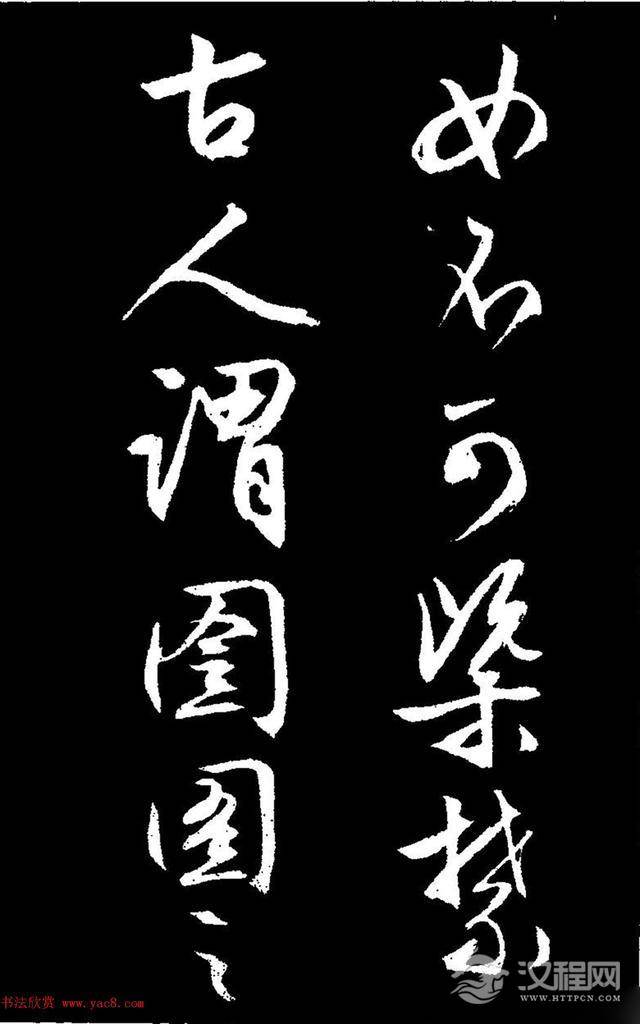 如不可槩楚
古人謂囹圄之
书法欣赏 www.yac8.com
汉程网
WWW.HTTPCN.COM